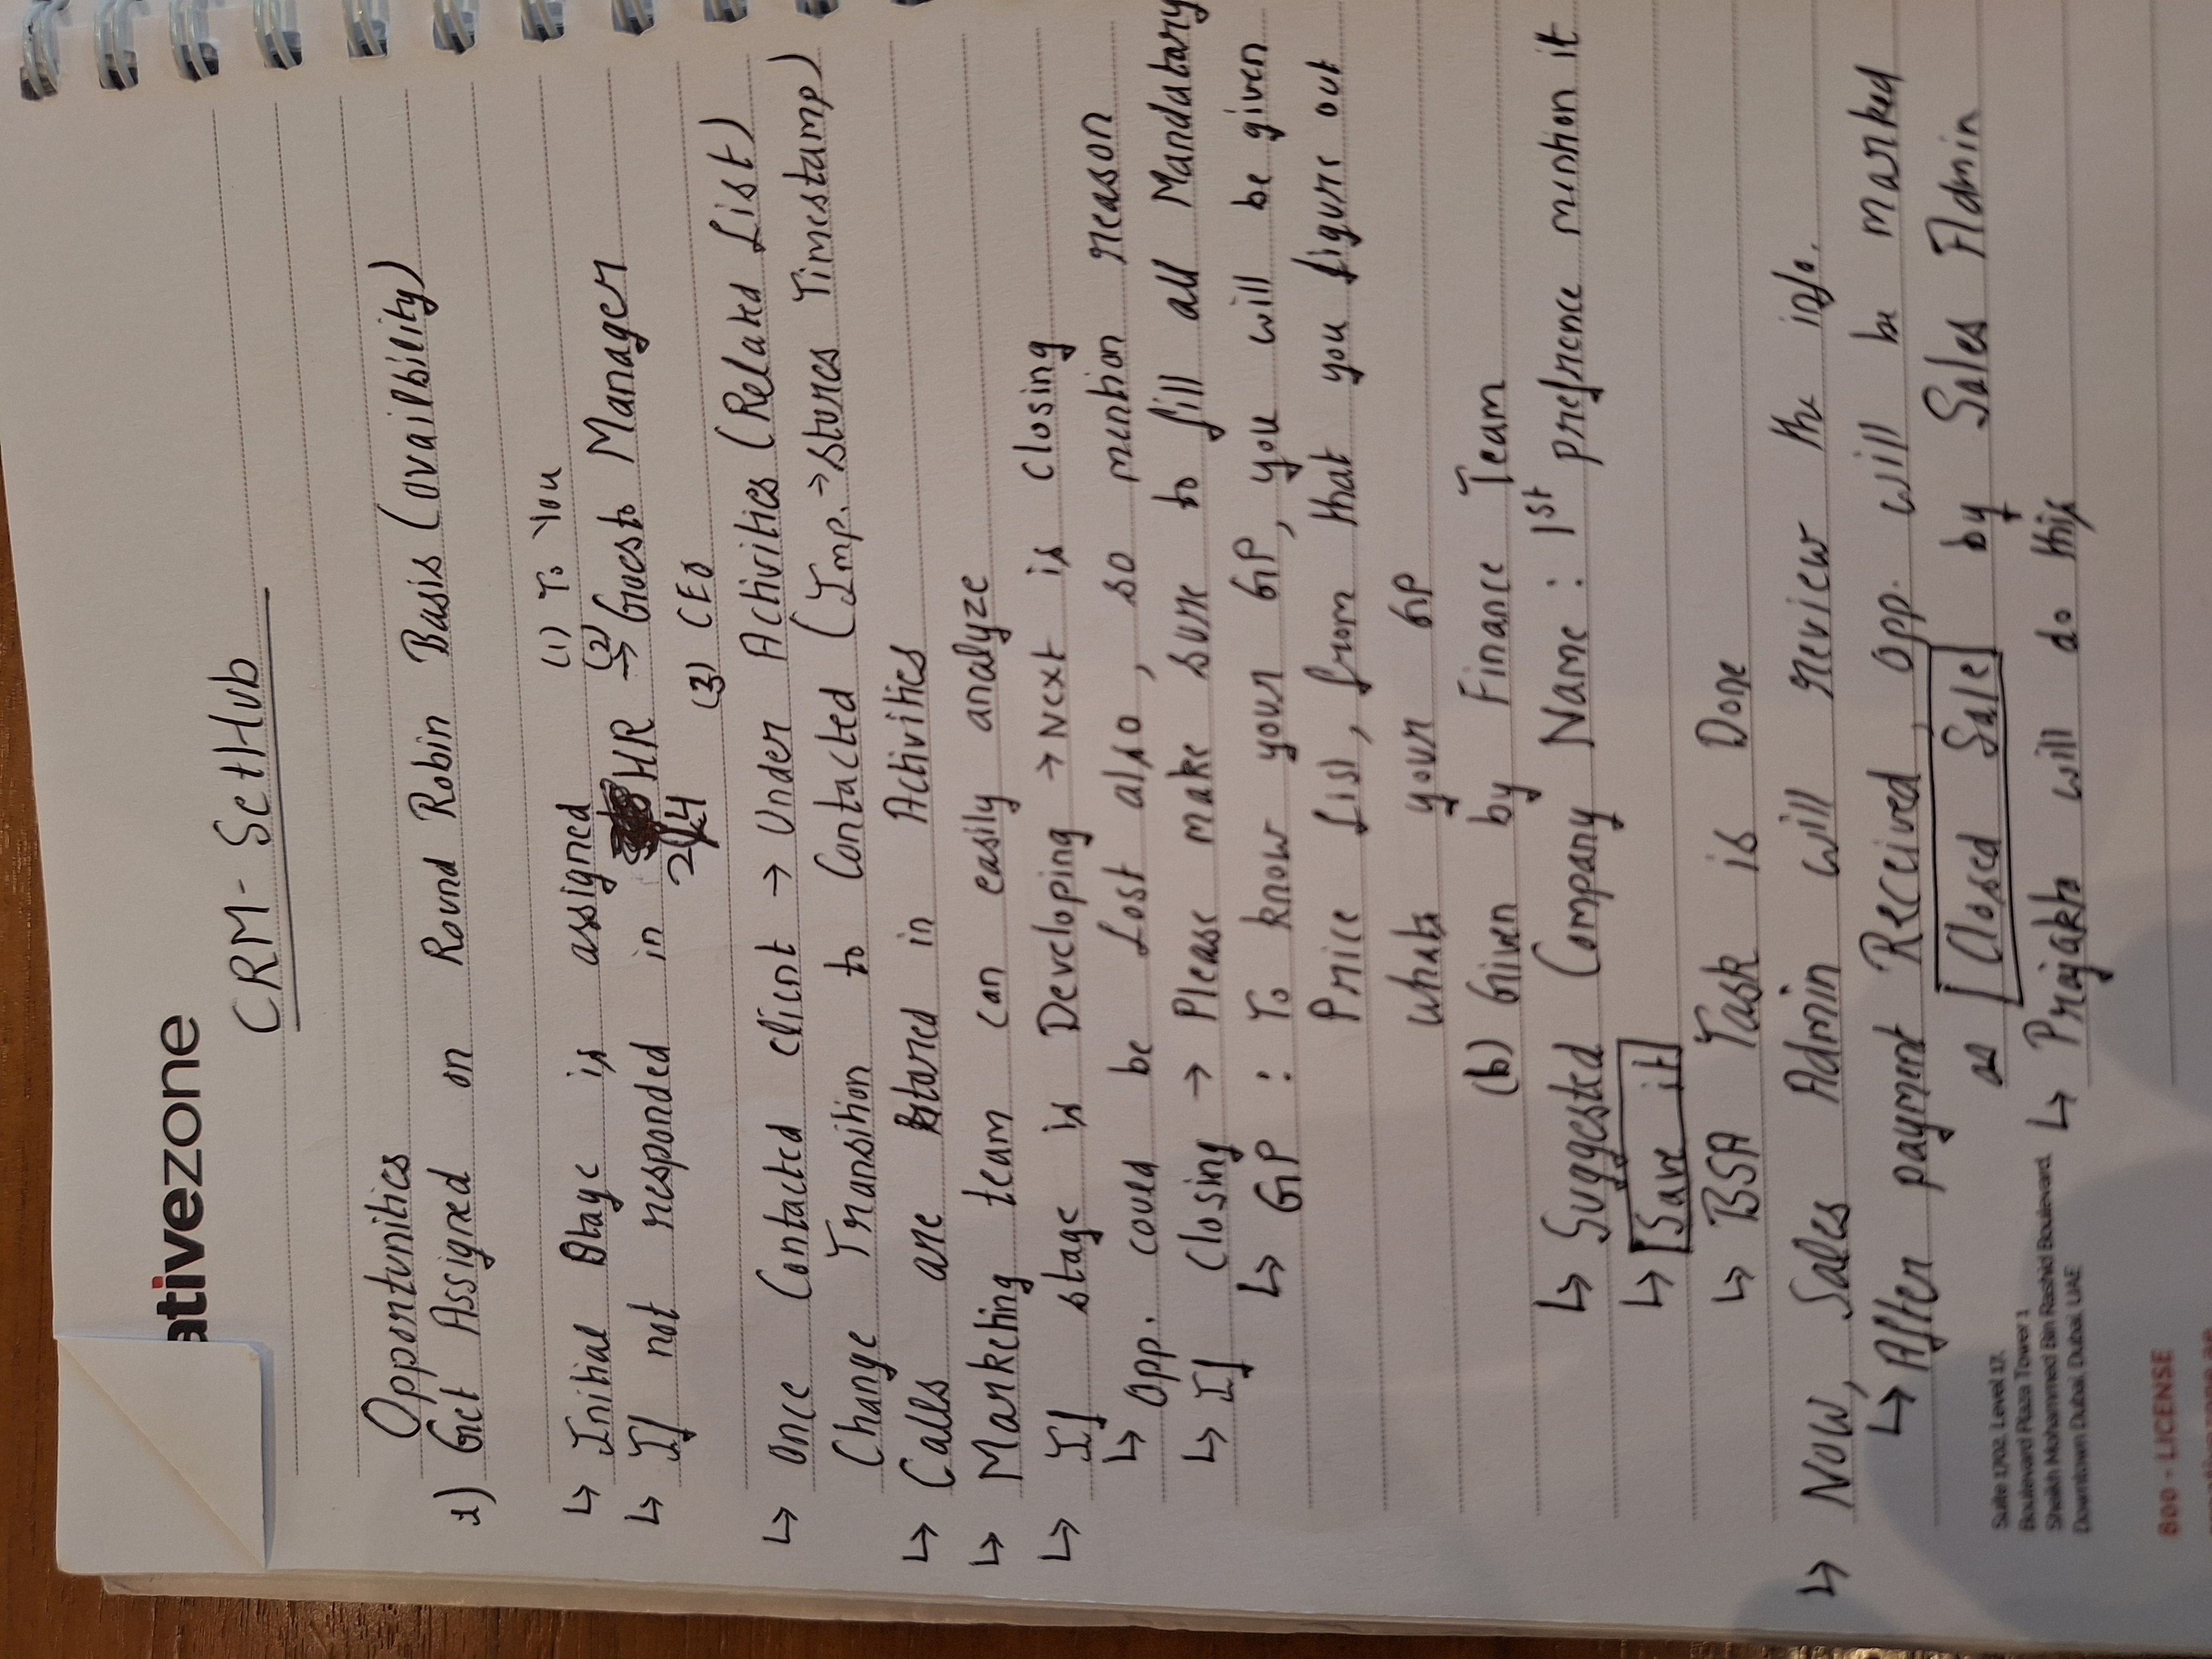 ativezone
CRM - SetHub
Opportunities
1) Get Assigned on Round Robin Basis (availbility)
(1) To You
↳ Initial Stage is assigned
(2)
↳ If not responded in HR → Goes to Manager
2/4
(3) CEO
↳ Once Contacted client → Under Activities (Related List)
Change Transition to Contacted (Imp. → stores Timestamp)
↳ Calls are stored in Activities
↳ Marketing team can easily analyze
↳ If stage is Developing → Next is Closing
↳ Opp. could be Lost also, so mention reason
↳ If Closing → Please make sure to fill all Mandatory
↳ GP : To know your GP, you will be given
Price List, from that you figure out
whats your GP
(b) Given by Finance Team
↳ Suggested Company Name : 1st prefrence mention it
↳ Save it
↳ BSA Task is Done
↳ Now, Sales Admin will review the info.
↳ After payment Received, opp. will be marked
as Closed Sale by Sales Admin
↳ Prajakta will do this
Suite 1702, Level 17,
Boulevard Plaza Tower 1
Sheikh Mohammed Bin Rashid Boulevard,
Downtown Dubai, Dubai, UAE
800 - LICENSE
creativezone.ae